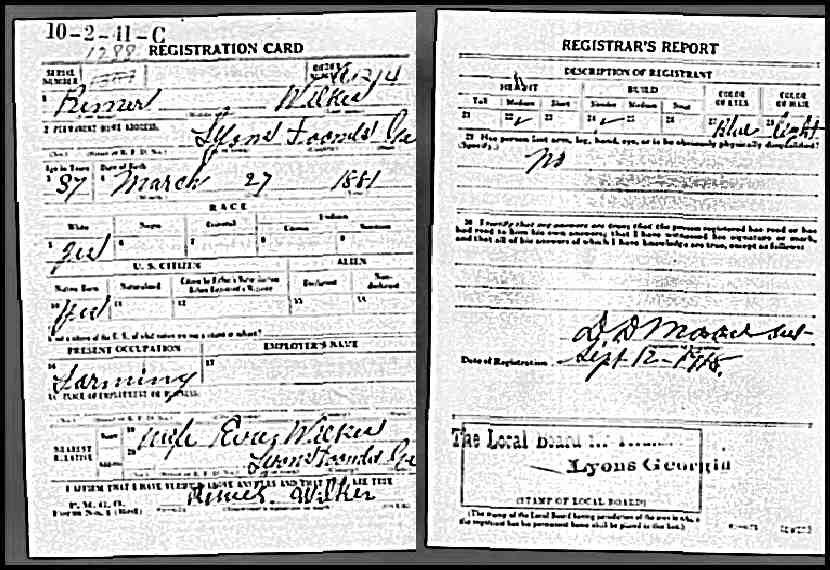 10-2-41-C
1288 REGISTRATION CARD
SERIAL NUMBER
ORDER NUMBER
1 Wilkes
2 PERMANENT HOME ADDRESS:
Lyons Toombs Ga
Age in Years Date of Birth
3 37 4 March 27 1881
RACE
White Negro Oriental Indian
Citizen Noncitizen
5 Yes 6 7 8 9
U. S. CITIZEN ALIEN
Native Born Naturalized Citizen by Father's Naturalization Before Registrant's Majority Declarant Non-declarant
10 Yes 11 12 13 14
PRESENT OCCUPATION EMPLOYER'S NAME
16 Farming 17
18 PLACE OF EMPLOYMENT OR BUSINESS:
NEAREST RELATIVE
Name 19 Wife Wilkes
Address 20 Lyons Toombs Ga
I AFFIRM THAT I HAVE VERIFIED ABOVE ANSWERS AND THAT THEY ARE TRUE
Wilkes
P. M. G. O.
Form No. 1 (Red)
REGISTRAR'S REPORT
DESCRIPTION OF REGISTRANT
HEIGHT BUILD COLOR OF EYES COLOR OF HAIR
Tall Medium Short Slender Medium Stout
21 22 ✓ 23 24 ✓ 25 26 27 Blue 28 Light
29 Has person lost arm, leg, hand, eye, or is he obviously physically disqualified?
(Specify.)
No
30 I certify that my answers are true; that the person registered has read or has
had read to him his own answers; that I have witnessed his signature or mark,
and that all of his answers of which I have knowledge are true, except as follows:
Date of Registration Sept 12-1918
The Local Board
Lyons Georgia
(STAMP OF LOCAL BOARD)
(The stamp of the Local Board having jurisdiction of the area in which
the registrant has his permanent home shall be placed in this box.)